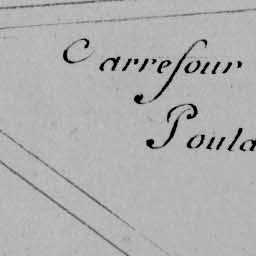 Carrefour
Poula